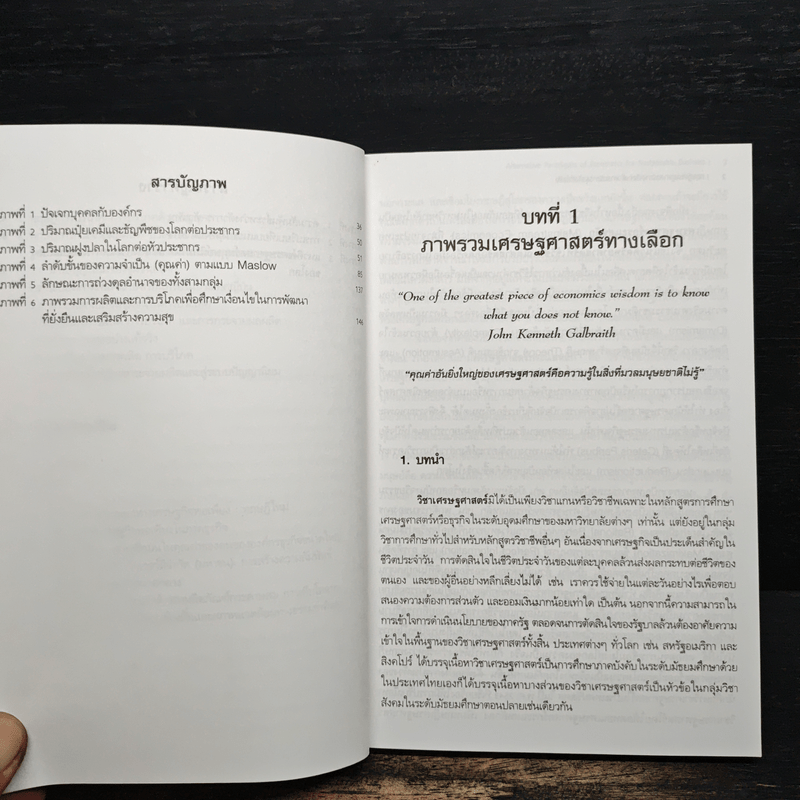 สารบัญภาพ
ภาพที่ 1 ปัจเจกบุคคลกับองค์กร
ภาพที่ 2 ปริมาณปุ๋ยเคมีและธัญพืชของโลกต่อประชากร 36
ภาพที่ 3 ปริมาณฝูงปลาในโลกต่อหัวประชากร 50
ภาพที่ 4 ลำดับชั้นของความจำเป็น (คุณค่า) ตามแบบ Maslow 51
ภาพที่ 5 ลักษณะการถ่วงดุลอำนาจของทั้งสามกลุ่ม 85
ภาพที่ 6 ภาพรวมการผลิตและการบริโภคเพื่อศึกษาเงื่อนไขในการพัฒนา 137
ที่ยั่งยืนและเสริมสร้างความสุข 146
บทที่ 1
ภาพรวมเศรษฐศาสตร์ทางเลือก
“One of the greatest piece of economics wisdom is to know
what you does not know.”
John Kenneth Galbraith
“คุณค่าอันยิ่งใหญ่ของเศรษฐศาสตร์คือความรู้ในสิ่งที่มวลมนุษยชาติไม่รู้”
1. บทนำ
วิชาเศรษฐศาสตร์มิได้เป็นเพียงวิชาแกนหรือวิชาชีพเฉพาะในหลักสูตรการศึกษา
เศรษฐศาสตร์หรือธุรกิจในระดับอุดมศึกษาของมหาวิทยาลัยต่างๆ เท่านั้น แต่ยังอยู่ในกลุ่ม
วิชาการศึกษาทั่วไปสำหรับหลักสูตรวิชาชีพอื่นๆ อันเนื่องจากเศรษฐกิจเป็นประเด็นสำคัญใน
ชีวิตประจำวัน การตัดสินใจในชีวิตประจำวันของแต่ละบุคคลล้วนส่งผลกระทบต่อชีวิตของ
ตนเอง และของผู้อื่นอย่างหลีกเลี่ยงไม่ได้ เช่น เราควรใช้จ่ายในแต่ละวันอย่างไรเพื่อตอบ
สนองความต้องการส่วนตัว และออมเงินมากน้อยเท่าใด เป็นต้น นอกจากนี้ความสามารถใน
การเข้าใจการดำเนินนโยบายของภาครัฐ ตลอดจนการตัดสินใจของรัฐบาลล้วนต้องอาศัยความ
เข้าใจในพื้นฐานของวิชาเศรษฐศาสตร์ทั้งสิ้น ประเทศต่างๆ ทั่วโลก เช่น สหรัฐอเมริกา และ
สิงคโปร์ ได้บรรจุเนื้อหาวิชาเศรษฐศาสตร์เป็นการศึกษาภาคบังคับในระดับมัธยมศึกษาด้วย
ในประเทศไทยเองก็ได้บรรจุเนื้อหาบางส่วนของวิชาเศรษฐศาสตร์เป็นหัวข้อในกลุ่มวิชา
สังคมในระดับมัธยมศึกษาตอนปลายเช่นเดียวกัน